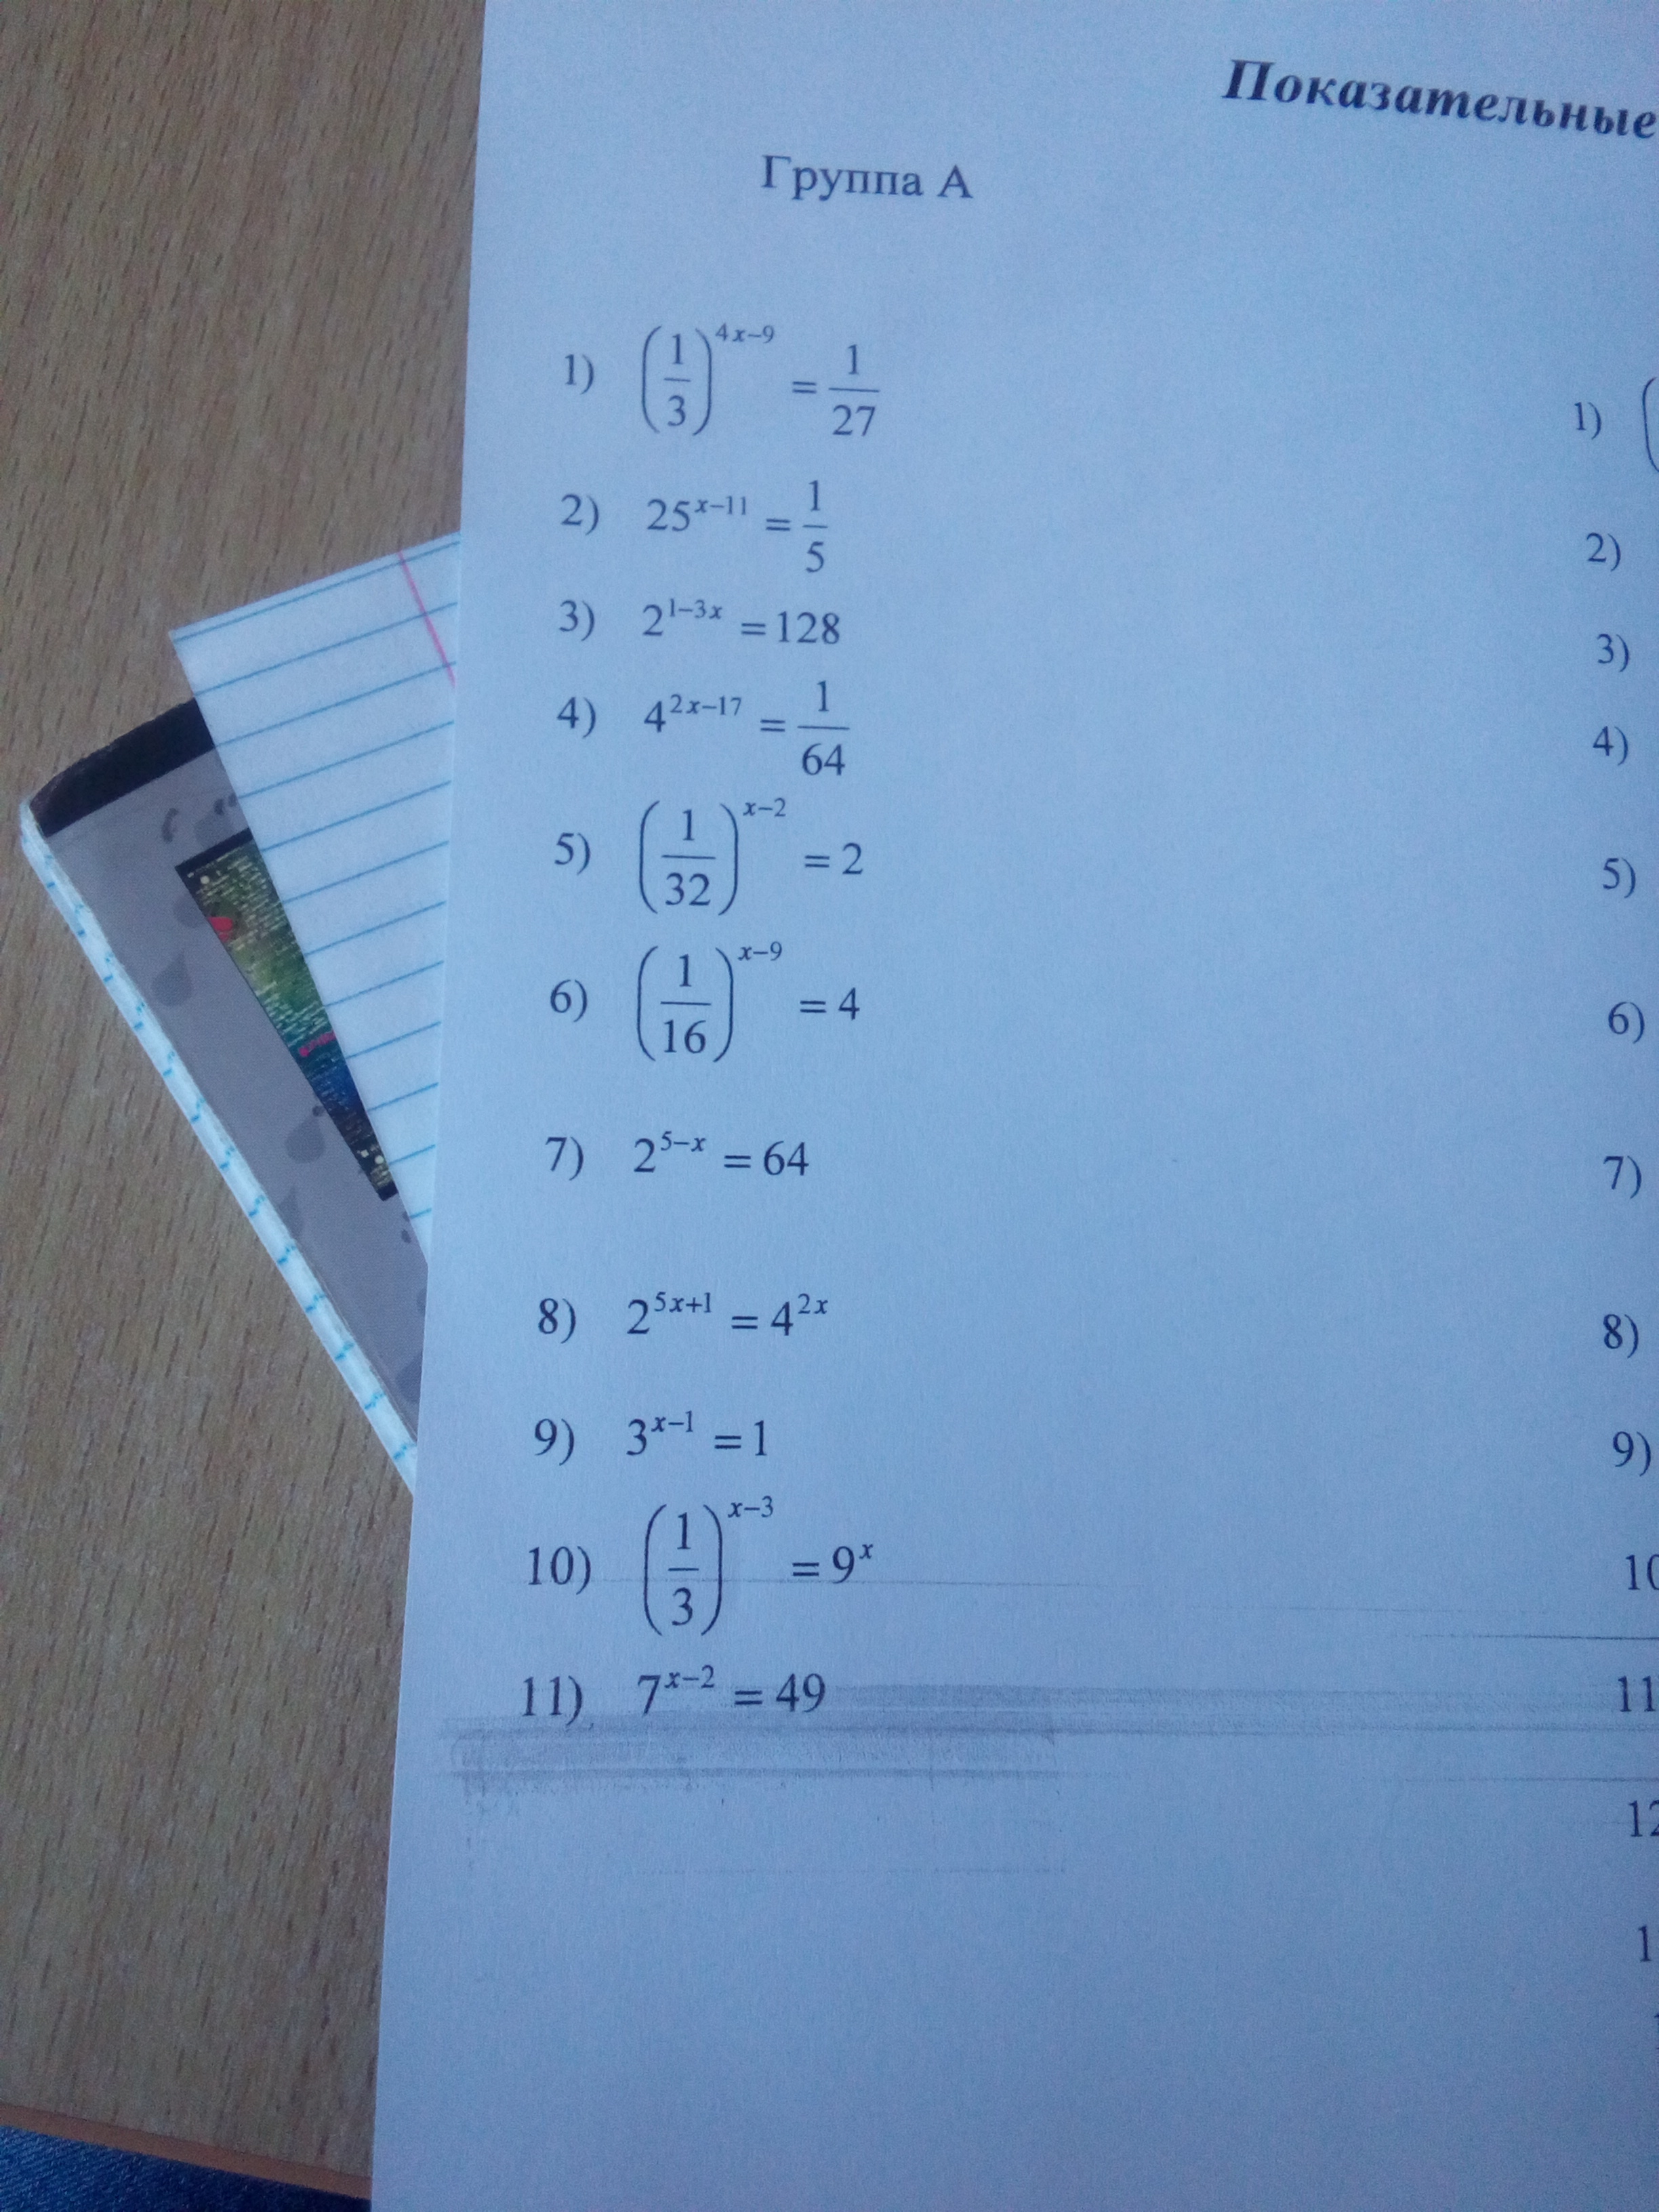 Показательные
Группа А
1) (1/3)^(4x−9) = 1/27
2) 25^(x−11) = 1/5
3) 2^(1−3x) = 128
4) 4^(2x−17) = 1/64
5) (1/32)^(x−2) = 2
6) (1/16)^(x−9) = 4
7) 2^(5−x) = 64
8) 2^(5x+1) = 4^(2x)
9) 3^(x−1) = 1
10) (1/3)^(x−3) = 9^x
11) 7^(x−2) = 49
1) (
2)
3)
4)
5)
6)
7)
8)
9)
10
11
12
1